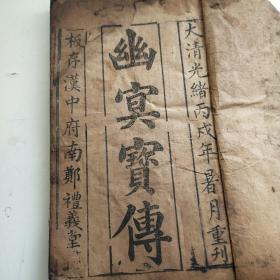 大清光緒丙戌年暑月重刊
幽冥寶傳
板存漢中府南鄭禮義堂